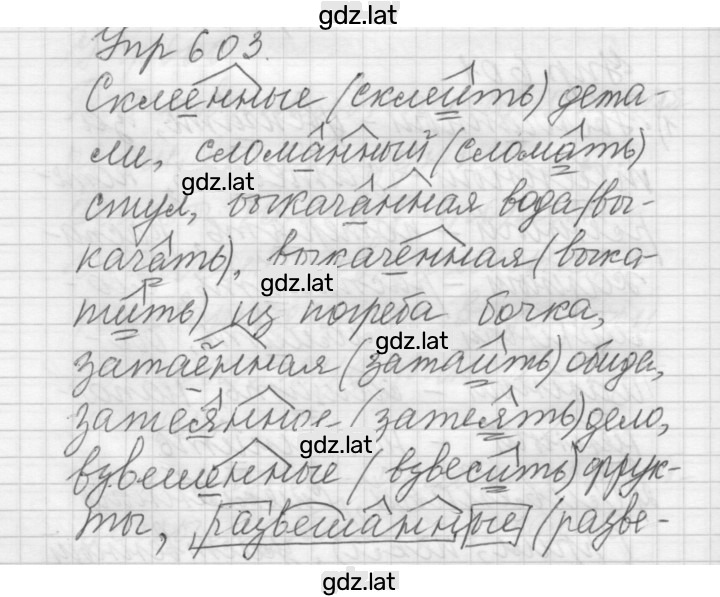 gdz.lat
Упр 603.
Склеенные (склеить) дета-
ли, сломанный (сломать)
gdz.lat
стул, выкачанная вода (вы-
качать), выкаченная (выка-
gdz.lat
тить) из погреба бочка,
gdz.lat
затаённая (затаить) обида,
затеянное (затеять) дело,
gdz.lat
взвешенные (взвесить) фрук-
ты, развешанные (разве-
gdz.lat